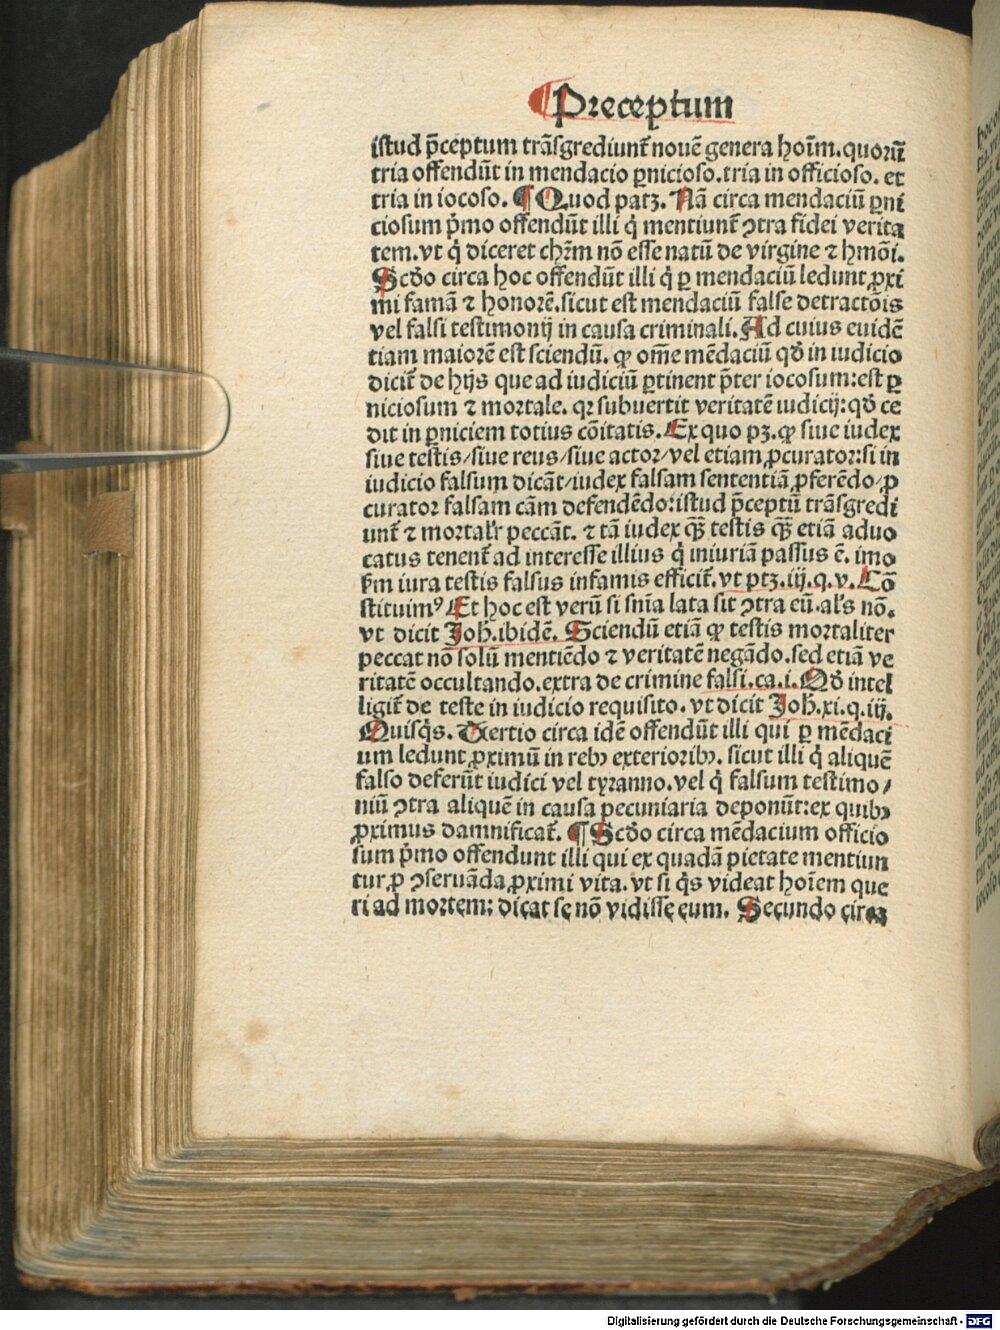 ¶ Preceptum
istud p̄ceptum trãsgrediunt̃ nouẽ genera hoĩm. quorũ
tria offendũt in mendacio ꝑnicioso. tria in officioso. et
tria in iocoso. ¶ Quod patꝫ. Nã circa mendaciũ ꝑni
ciosum p̄mo offendũt illi q̇ mentiunt̃ ꝯtra fidei verita
tem. vt q̇ diceret chr̃m nõ esse natũ de virgine ⁊ hmõi.
Scďo circa hoc offendũt illi q̇ ꝑ mendaciũ ledunt ꝓxi
mi famã ⁊ honorẽ. sicut est mendaciũ false detractõis
vel falsi testimonij in causa criminali. Ad cuius euidẽ
tiam maiorẽ est sciendũ. ꝙ om̃e mẽdaciũ qď in iudicio
dicit̃ de hijs que ad iudiciũ ꝑtinent p̄ter iocosum: est ꝑ
niciosum ⁊ mortale. qꝛ subuertit veritatẽ iudicij: qď ce
dit in ꝑniciem totius cõitatis. Ex quo pꝫ. ꝙ siue iudex
siue testis/siue reus/siue actor/vel etiam ꝓcurator: si in
iudicio falsum dicãt/iudex falsam sententiã ꝓferẽdo/ꝓ
curator falsam cãm defendẽdo: istud p̄ceptũ trãsgredi
unt̃ ⁊ mortal'r peccãt. ⁊ tã iudex q̃ꝫ testis q̃ꝫ etiã aduo
catus tenent̃ ad interesse illius q̇ iniuriã passus ẽ. imo
ẜm iura testis falsus infamis efficit̃. vt ptꝫ. iij. q. v. Cõ
stituimꝰ Et hoc est verũ si snĩa lata sit ꝯtra eũ. al's nõ.
vt dicit Joh̃. ibidẽ. Sciendũ etiã ꝙ testis mortaliter
peccat nõ solũ mentiẽdo ⁊ veritatẽ negãdo. sed etiã ve
ritatẽ occultando. extra de crimine falsi. ca. i. Qď intel
ligit̃ de teste in iudicio requisito. vt dicit Joh̃. xi. q. iij.
Quisq̇s. Tertio circa idẽ offendũt illi qui ꝑ mẽdaci
um ledunt ꝓximũ in rebꝰ exterioribꝰ. sicut illi q̇ aliquẽ
falso deferũt iudici vel tyranno. vel q̇ falsum testimo/
niũ ꝯtra aliquẽ in causa pecuniaria deponũt: ex quibꝰ
ꝓximus damnificat̃. ¶ Scďo circa mẽdacium officio
sum p̄mo offendunt illi qui ex quadã pietate mentiun
tur ꝓ ꝯseruãda ꝓximi vita. vt si q̇s videat hoĩem que
ri ad mortem: dicat se nõ vidisse eum. Secundo circa
Digitalisierung gefördert durch die Deutsche Forschungsgemeinschaft - DFG